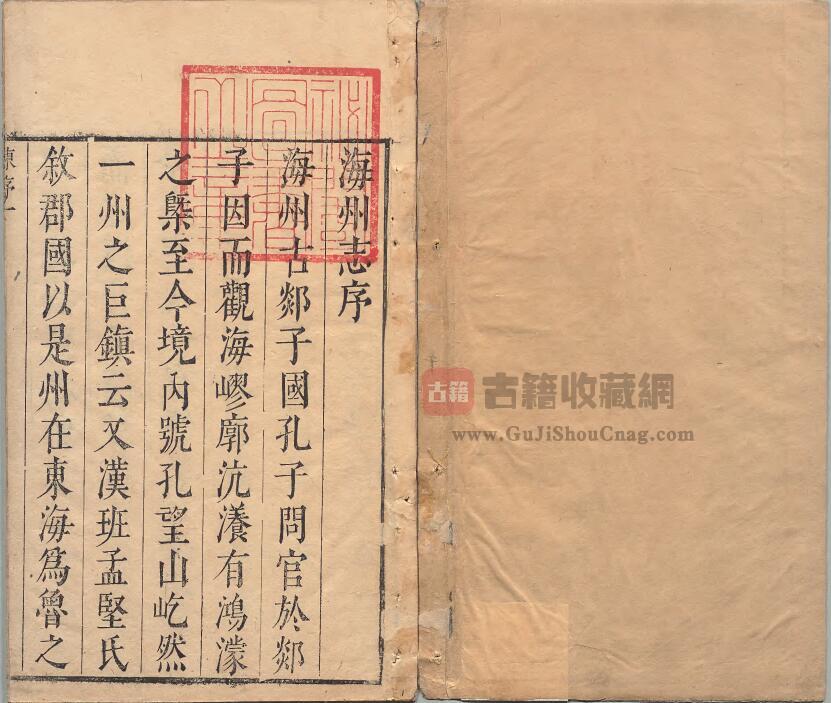 海州志序
海州古郯子國孔子問官於郯
子因而觀海嵺廓沆瀁有鴻濛
之槩至今境內號孔望山屹然
一州之巨鎮云又漢班孟堅氏
敘郡國以是州在東海爲魯之
序一
古籍
古籍收藏網
www.GuJiShouCnag.com